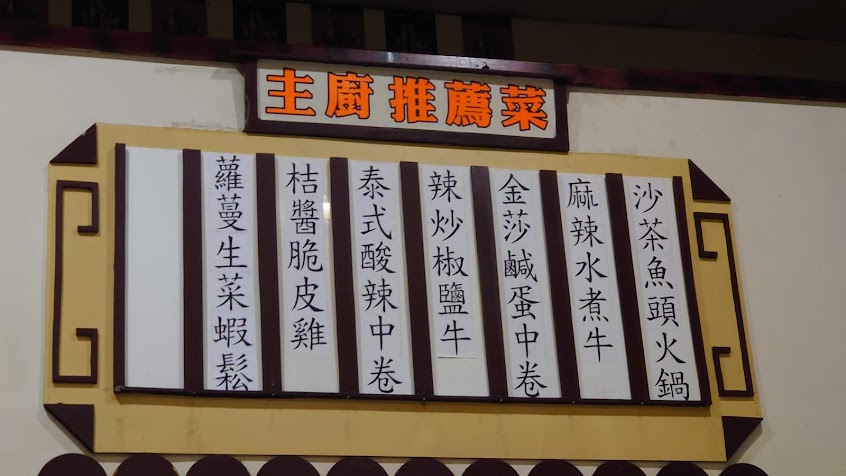 主廚推薦菜
沙茶魚頭火鍋
麻辣水煮牛
金莎鹹蛋中卷
辣炒椒鹽牛
泰式酸辣中卷
桔醬脆皮雞
蘿蔓生菜蝦鬆